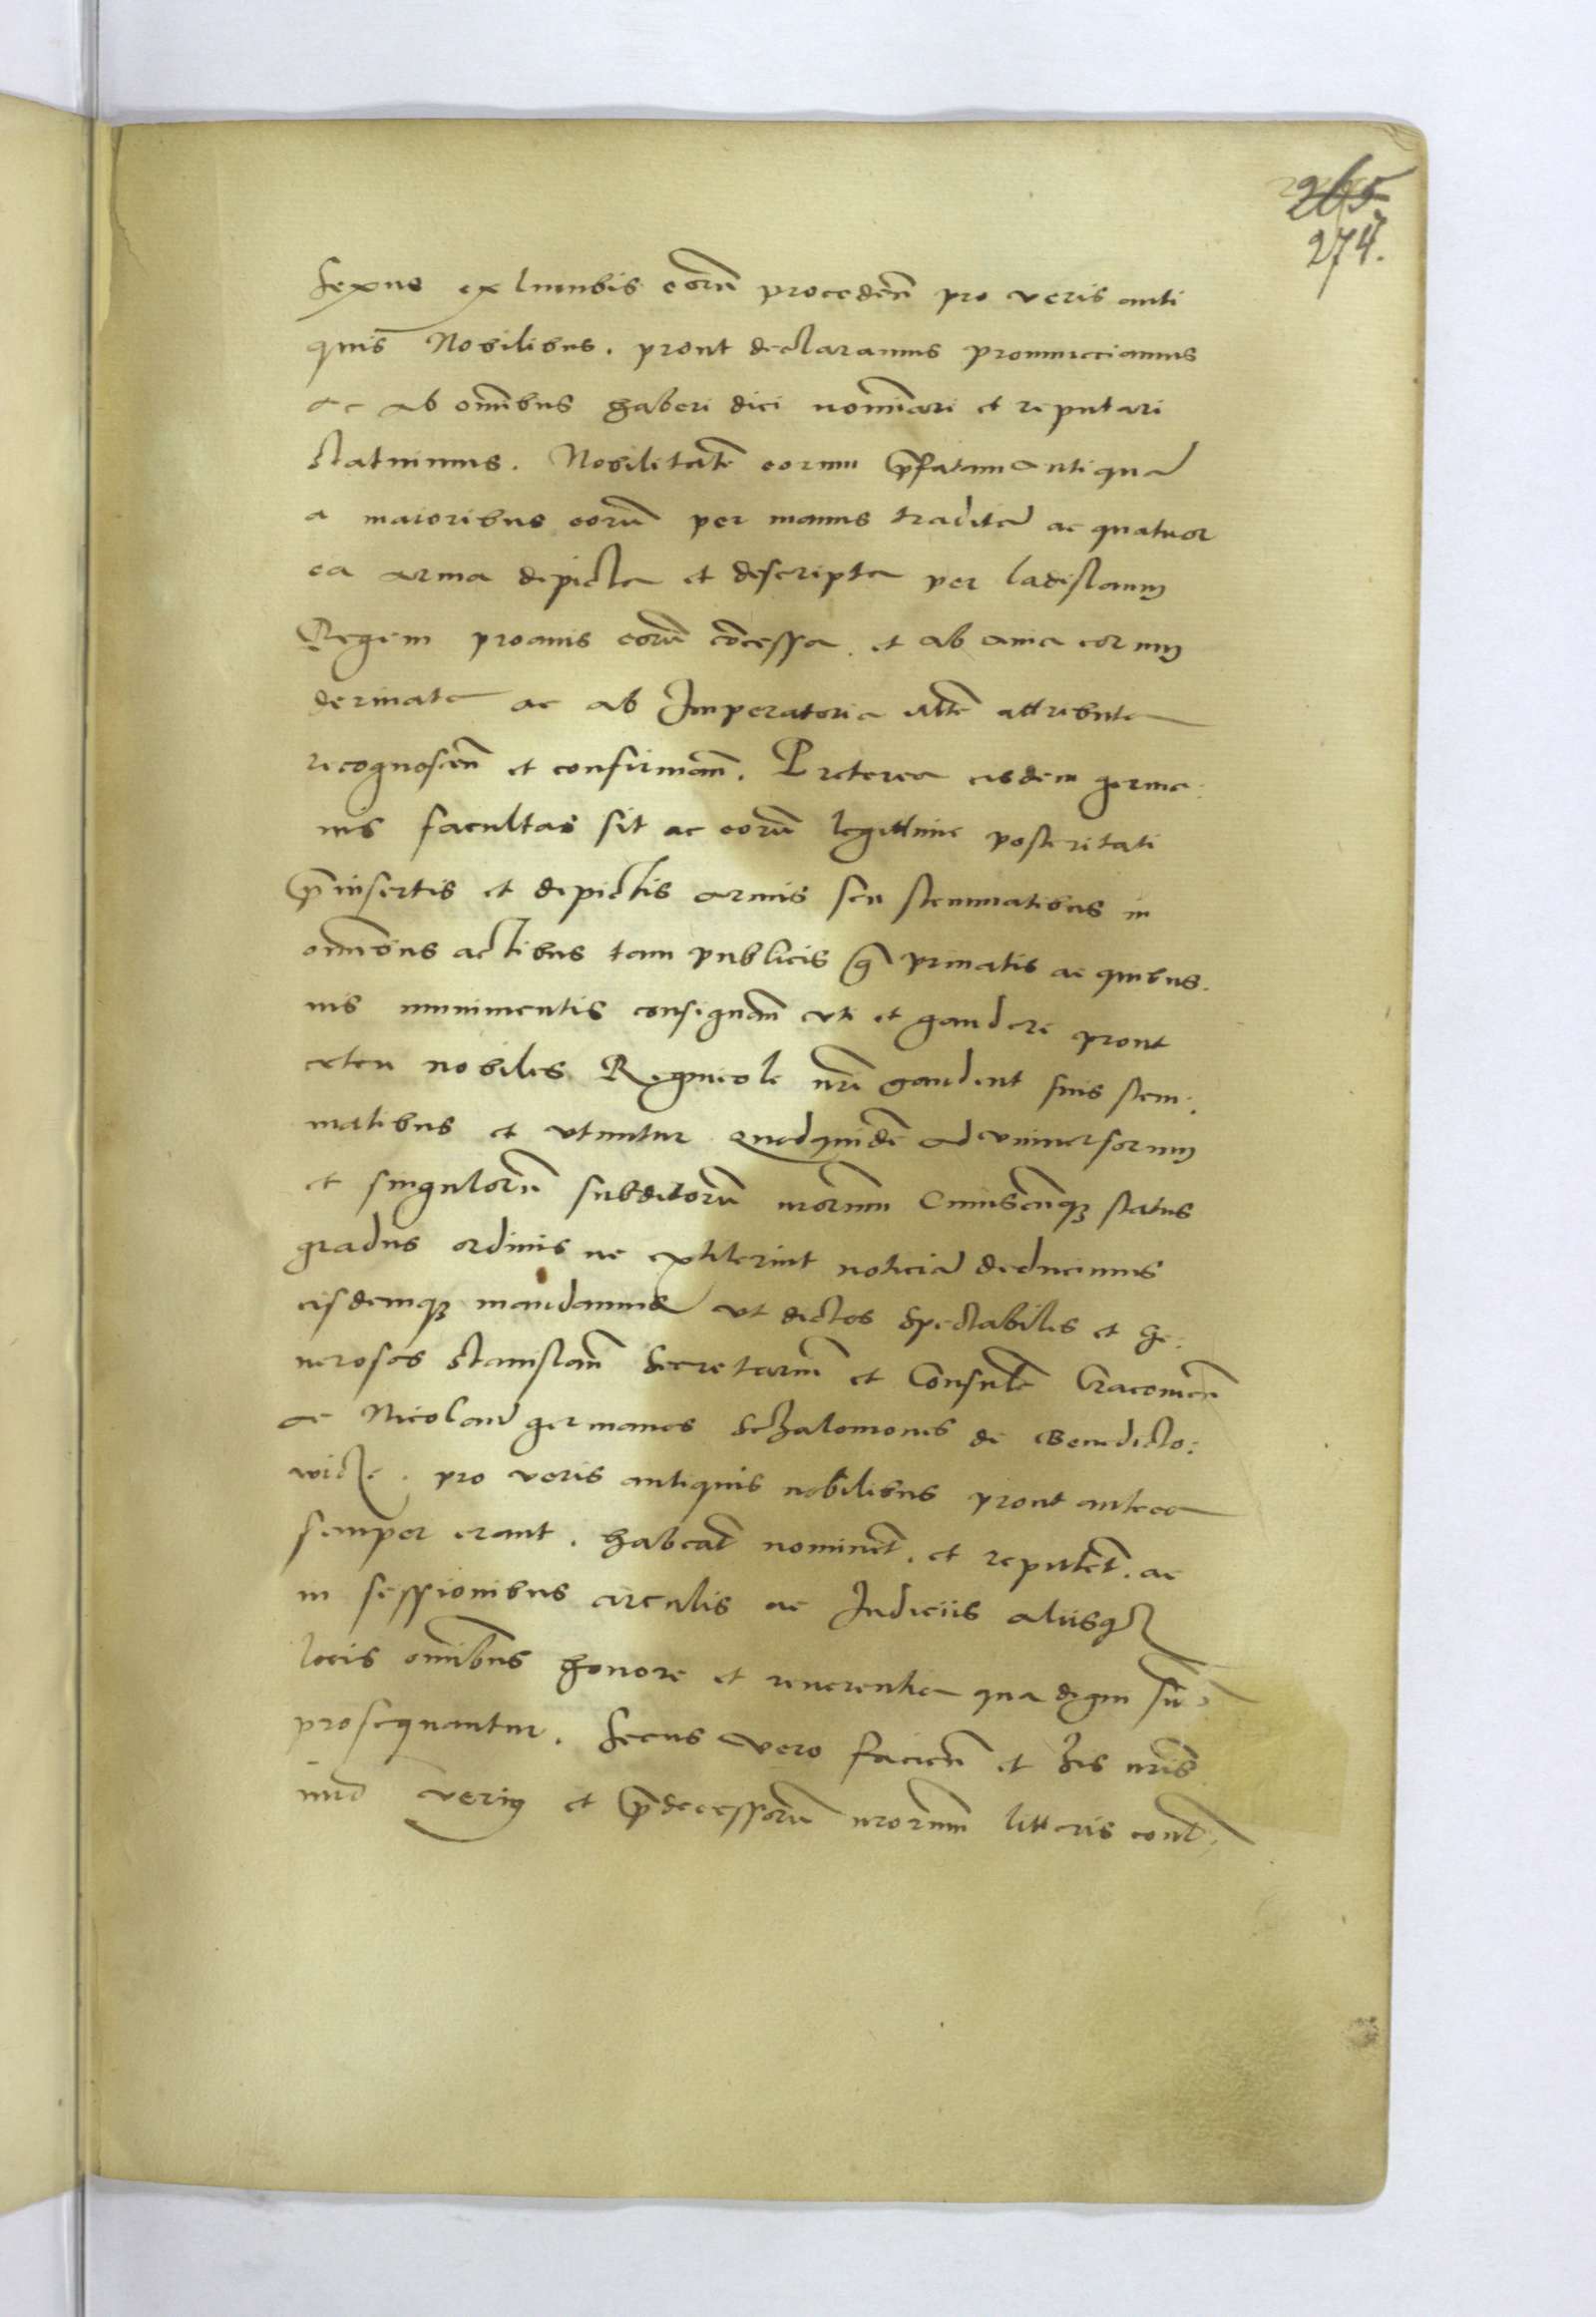 265
274.
sexus ex lumbis eorū procedeñ pro veris anti
quis Nobilibus. prout declaramus pronunctiamus
ac ab om̄ibus haberi dici nomīari et reputari
statuimus. Nobilitatē eorum p̄fatam antiquā
a maioribus eorū per manus traditā ac quatuor
ea arma depicta et descripta per ladislaum
Regem proauis eorū cōcessa. et ab auia eorum
deriuata ac ab Imperatoria attributa
recognosceñ et confirmañ. Preterea eisdem germa:
nis facultas sit ac eorū legittime posteritati
p̄insertis et depictis armis seu stemmatibus in
om̄ibus actibus tam publicis q̄ priuatis ac quibus.
uis munimentis consignañ vti et gaudere prout
nobiles Regnicole nr̄i gaudent suis stem:
matibus et vtuntur quodquidē ad vniuersorum
et singulorū subditorū nrorum Cuiuscūqꝫ status
gradus ordinis ue extiterint noticiā deducimus
eisdemqꝫ mandamus vt dictos Spectabiles et Ge:
nerosos Stanislaū Secretariū et Consulē Cracouieñ
ac Nicolaū germanos Schalomones de Benedicto:
wicze. pro veris antiquis nobilibus prout antea
semper erant. habeāt nominēt. et reputēt. ac
in sessionibus circulis ac Iudiciis aliisqꝫ
locis om̄ibus honore et reuerentia qua digni sūt
prosequantur. Secus vero facieñ et his nr̄is
imo verius et p̄decessorū nrorum litteris cont